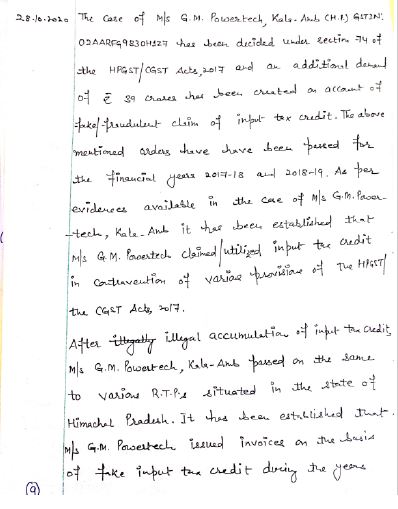 28.10.2020 The case of M/s G.M. Powertech, Kala-Amb (H.P.) GSTIN:
02AARFG9830H1Z7 has been decided under section 74 of
the HPGST/CGST Acts, 2017 and an additional demand
of ₹ 39 crores has been created on account of
fake/fraudulent claim of input tax credit. The above
mentioned orders have have been passed for
the financial years 2017-18 and 2018-19. As per
evidences available in the case of M/s G.M. Power-
-tech, Kala-Amb it has been established that
M/s G.M. Powertech claimed/utilized input tax credit
in contravention of various provisions of The HPGST/
the CGST Acts, 2017.
After illegally illegal accumulation of input tax credit,
M/s G.M. Powertech, Kala-Amb passed on the same
to various R.T.P.s situated in the state of
Himachal Pradesh. It has been established that
M/s G.M. Powertech issued invoices on the basis
of fake input tax credit during the years
(9)